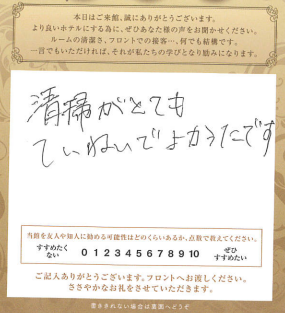 本日はご来館、誠にありがとうございます。
より良いホテルにする為に、ぜひあなた様の声をお聞かせください。
ルームの清潔さ、フロントでの接客…、何でも結構です。
一言でもいただければ、それが私たちの学びとなり励みになります。
清掃がとても
ていねいでよかったです
当館を友人や知人に勧める可能性はどのくらいあるか、点数で教えてください。
すすめたくない 0 1 2 3 4 5 6 7 8 9 10 ぜひすすめたい
ご記入ありがとうございます。フロントへお渡しください。
ささやかなお礼をさせていただきます。
書ききれない場合は裏面へどうぞ